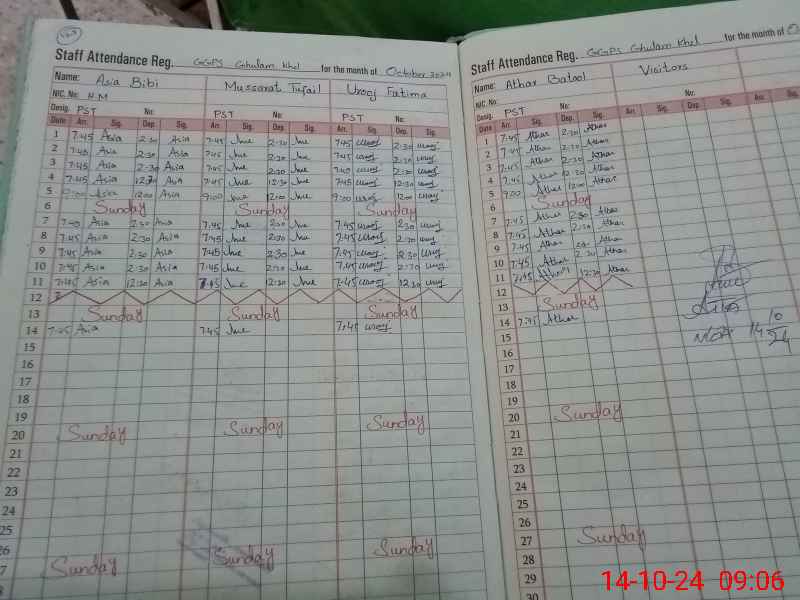 Staff Attendance Reg. GGPS Ghulam Khel for the month of October 2024
Name: Asia Bibi Mussarat Tufail Urooj Fatima
NIC. No: H.M
Desig. PST No: PST No: PST No:
Date Arr. Sig. Dep. Sig. Arr. Sig. Dep. Sig. Arr. Sig. Dep. Sig.
1 7:45 Asia 2:30 Asia 7:45 2:30 7:45 Urooj 2:30 Urooj
2 7:45 Asia 2:30 Asia 7:45 2:30 7:45 Urooj 2:30 Urooj
3 7:45 Asia 2:30 Asia 7:45 2:30 7:45 Urooj 2:30 Urooj
4 7:45 Asia Asia 7:45 12:30 7:45 Urooj 12:30 Urooj
5 9:00 Asia 12:00 Asia 9:00 12:00 9:00 Urooj 12:00 Urooj
6 Sunday Sunday Sunday
7 Asia 2:30 Asia 7:45 2:30 7:45 Urooj 2:30 Urooj
8 7:45 Asia 2:30 Asia 7:45 2:30 7:45 Urooj 2:30 Urooj
9 7:45 Asia 2:30 Asia 7:45 2:30 7:45 Urooj 2:30 Urooj
10 7:45 Asia 2:30 Asia 7:45 2:30 7:45 Urooj 2:30 Urooj
11 7:45 Asia 12:30 Asia 7:45 12:30 7:45 Urooj 12:30 Urooj
12
13 Sunday Sunday Sunday
14 7:45 Asia 7:45 7:45 Urooj
15
16
17
18
19
20 Sunday Sunday Sunday
21
22
23
24
25
26
Sunday Sunday Sunday
Staff Attendance Reg. GGPS Ghulam Khel for the month of
Name: Athar Batool Visitors
NIC. No:
Desig. PST No: No:
Date Arr. Sig. Dep. Sig. Arr. Sig. Dep. Sig. Arr. Sig.
1 7:45 Athar 2:30 Athar
2 7:45 Athar 2:30 Athar
3 7:45 Athar 2:30 Athar
4 7:45 Athar 12:30 Athar
5 9:00 Athar 12:00 Athar
6 Sunday
7 7:45 Athar 2:30 Athar
8 7:45 Athar 2:30 Athar
9 7:45 Athar Athar
10 7:45 Athar 2:30 Athar
11 7:45 Athar 12:30 Athar
12
13 Sunday
14 7:45 Athar
15 MEA 14/10/24
16
17
18
19
20 Sunday
21
22
23
24
25
26
27 Sunday
28
29
30
14-10-24 09:06